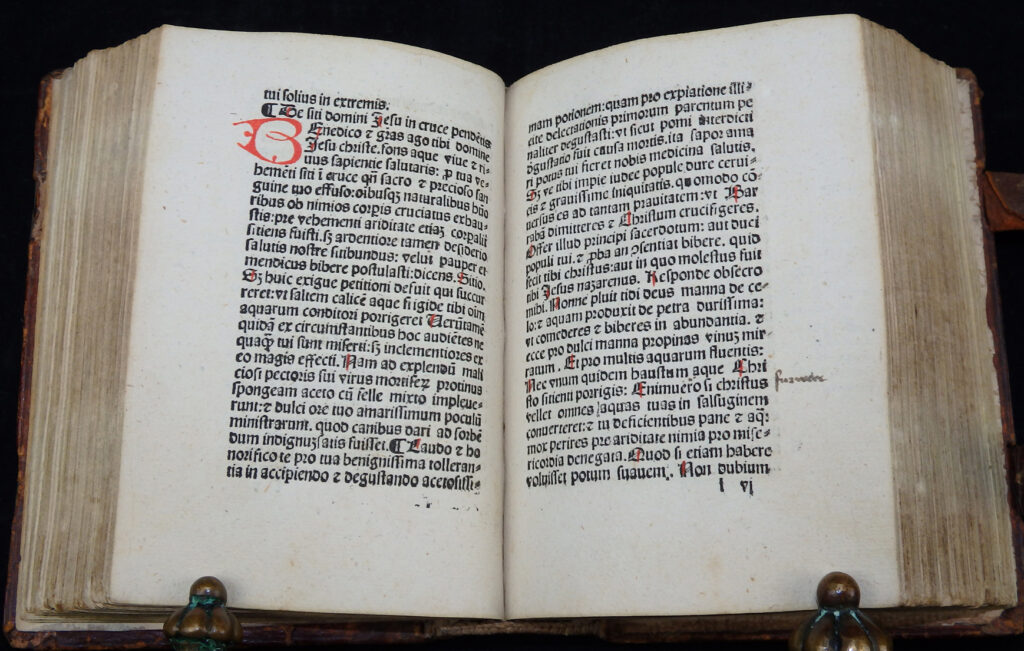 tui solius in extremis.
¶ De siti domini Jesu in cruce pendẽtis
BEnedico ⁊ gras ago tibi domine
Jesu christe. fons aque viue ⁊ ri-
uus sapientie salutaris: ꝓ tua ve-
hemẽti siti ĩ cruce qñ sacro ⁊ precioso san
guine tuo effuso: oĩbusqꝫ naturalibus hũo
ribus ob nimios corpis cruciatus exhau-
stis: pre vehementi ariditate etiaꝫ corꝑalit̃
sitiens fuisti. sꝫ ardentiore tamen desiderio
salutis nostre suibundus: velut pauper et
mendicus bibere postulasti: dicens. Sitio.
Sꝫ huic exigue petitioni defuit qui succur
reret: vt saltem calicẽ aque frigide tibi oĩm
aquarum conditori porrigeret Uerũtamẽ
quidã ex circumstantibus hoc audiẽtes ne
quaqꝫ tui sunt miserti: sꝫ inclementiores ex
eo magis effecti. Nam ad explendũ mali
ciosi pectoris sui virus mortiferꝫ protinus
spongeam aceto cũ felle mixto impleue-
runt: ⁊ dulci ore tuo amarissimum poculũ
ministrarunt. quod canibus dari ad sorbẽ
dum indignuꝫ satis fuisset. ¶ Laudo ⁊ ho
norifico te pro tua benignissima tolleran-
tia in accipiendo ⁊ degustando acetosissi-
mam potionem: quam pro expiatione illi-
cite delectationis primorum parentum pe
naliter degustasti: vt sicut pomi interdicti
dgustatio fuit causa mortis. ita sapor ama
ri potus tui fieret nobis medicina salutis.
Sꝫ ve tibi impie iudee popule. dure cerui-
cis ⁊ grauissime iniquitatis. quomodo cõ-
uersus es ad tantam prauitatem: vt Bar
rabã dimitteres ⁊ Christum crucifigeres.
Offer illud principi sacerdotum: aut duci
populi tui. ⁊ ꝓba an ꝯsentiat bibere. quid
fecit tibi christus: aut in quo molestus fuit
tibi Jesus nazarenus. Responde obsecro
mihi. Nonne pluit tidi deus manna de ce-
lo: ⁊ aquam produxit de petra durissima:
vt comederes ⁊ biberes in abundantia. ⁊
ecce pro dulci manna propinas vinuꝫ mir-
ratum. Et pro multis aquarum fluentis:
Nec vnum quidem haustum aque Chri
sto sitienti porrigis: Enimuero si christus
vellet omnes aquas tuas in salsuginem
conuerteret: ⁊ tu deficientibus pane ⁊ aqꝫ
mox perires pre ariditate nimia pro mise-
ricordia denegata. Quod si etiam habere
voluisset potum suauem. Non dubium
l vi